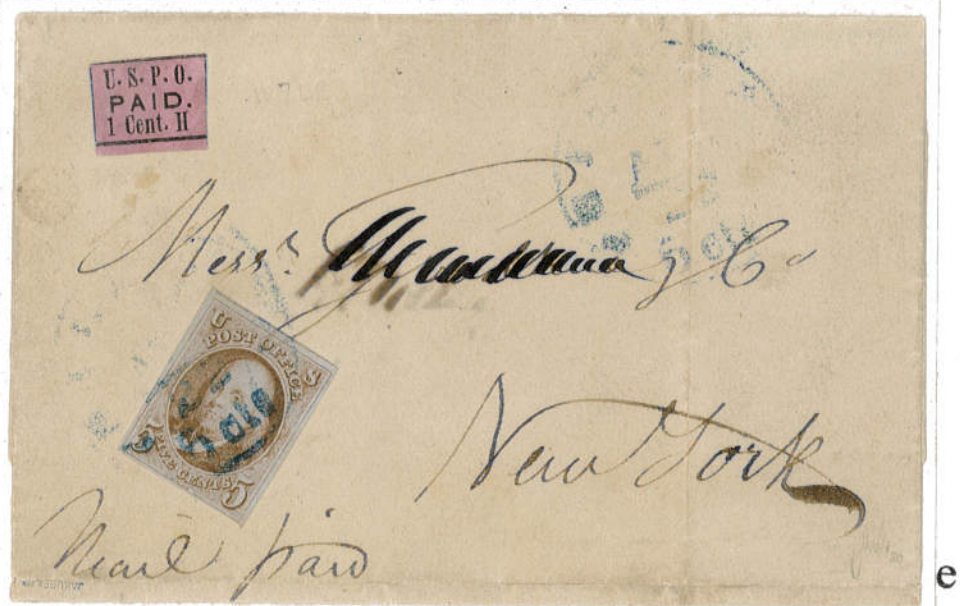 U. S. P. O.
PAID.
1 Cent. H
Mess.rs & Co
U S
POST OFFICE
5 FIVE CENTS 5
PAID
New York
Mail paid
e